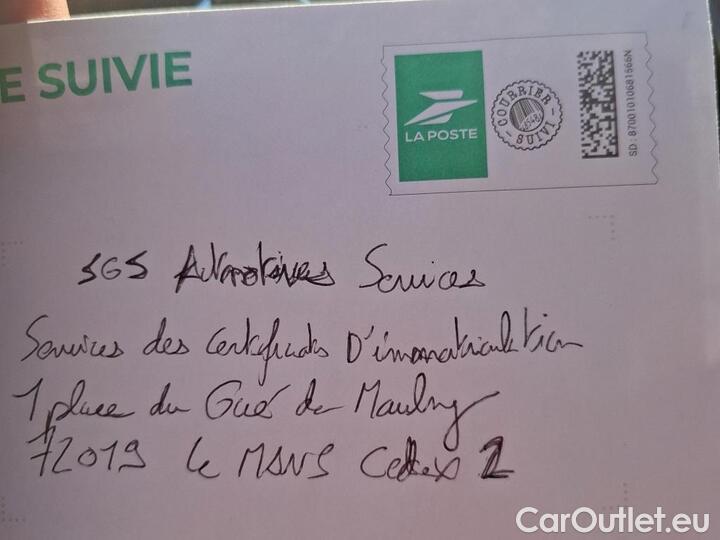 E SUIVIE
LA POSTE
COURRIER SUIVI
SD : 87001010681566N
SGS Automotives Services
Services des Certificats D'immatriculation
1 place du Gué de Maulny
72019 Le MANS Cedex 2
CarOutlet.eu